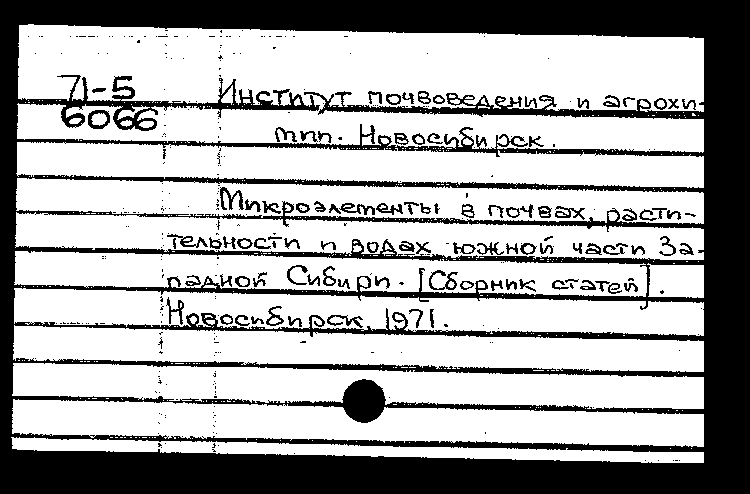 71-5
6066
Институт почвоведения и агрохи-
мии. Новосибирск.
Микроэлементы в почвах, расти-
тельности и водах южной части За-
падной Сибири. [Сборник статей].
Новосибирск, 1971.